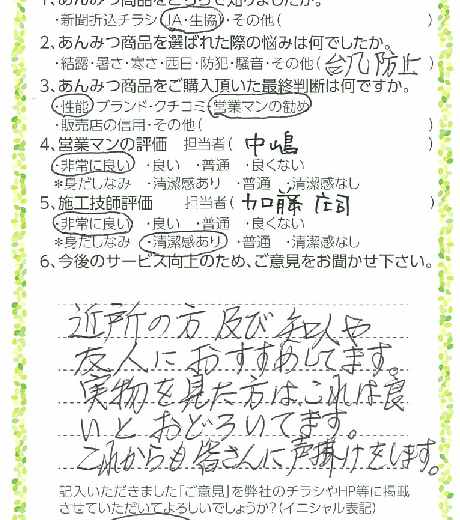 1、あんみつ商品をどちらで知りましたか。
・新聞折込チラシ・JA・生協・その他( )
2、あんみつ商品を選ばれた際の悩みは何でしたか。
・結露・暑さ・寒さ・西日・防犯・騒音・その他( 台風防止 )
3、あんみつ商品をご購入頂いた最終判断は何ですか。
・性能・ブランド・クチコミ・営業マンの勧め
・販売店の信用・その他( )
4、営業マンの評価 担当者( 中嶋 )
・非常に良い ・良い ・普通 ・良くない
*身だしなみ ・清潔感あり ・普通 ・清潔感なし
5、施工技師評価 担当者( 加藤 庄司 )
・非常に良い ・良い ・普通 ・良くない
*身だしなみ ・清潔感あり ・普通 ・清潔感なし
6、今後のサービス向上のため、ご意見をお聞かせ下さい。
近所の方及び知人や
友人におすすめしてます。
実物を見た方は、これは良
いとおどろいてます。
これからも皆さんに声掛けをします。
記入いただきました「ご意見」を弊社のチラシやHP等に掲載
させていただいてよろしいでしょうか?(イニシャル表記)